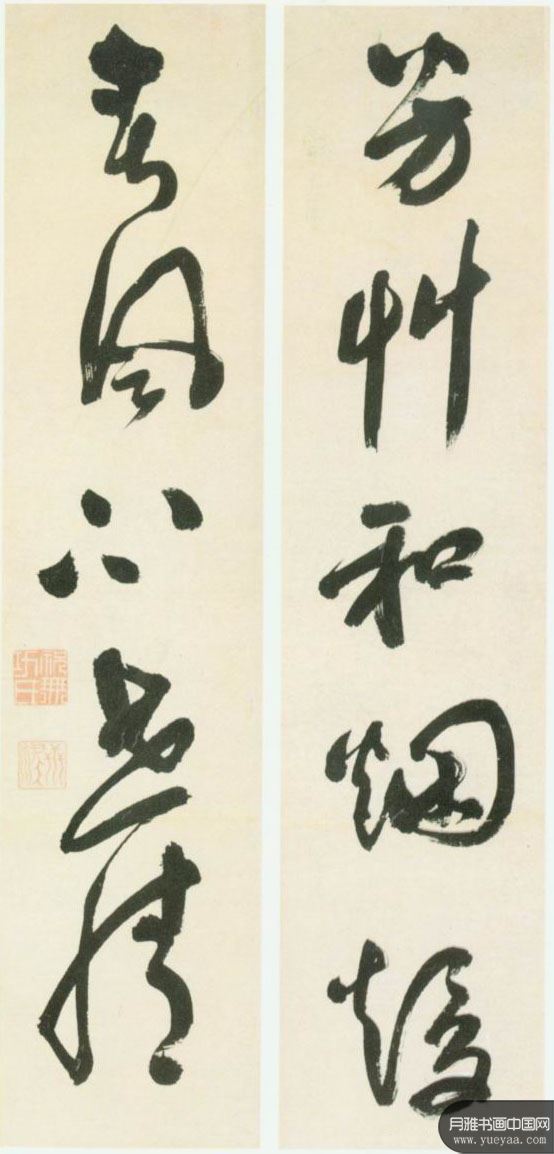 芳艸和烟煖
春風不世情
月雅书画中国网
www.yueyaa.com